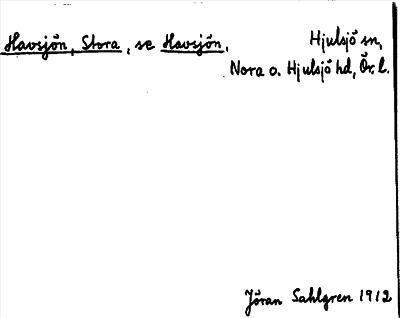 Havsjön, Stora, se Havsjön. Hjulsjö sn,
Nora o. Hjulsjö hd, Ör. l.
Jöran Sahlgren 1912